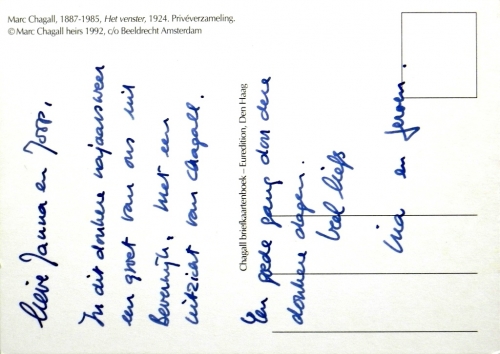 Marc Chagall, 1887-1985, Het venster, 1924. Privéverzameling.
© Marc Chagall heirs 1992, c/o Beeldrecht Amsterdam
Chagall briefkaartenboek – Euredition, Den Haag
Lieve Janna en Joop,
In dit donkere najaarsweer
een groet van ons uit
Beverwijk. Met een
uitzicht van Chagall.
Een goede gang door deze
donkere dagen.
Veel liefs
Ina en Jeroen.